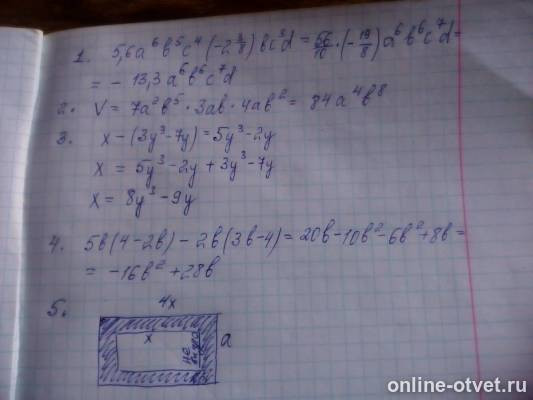 1. 5,6a⁶b⁵c⁴(-2 3/8)bc³d = 56/10 · (-19/8)a⁶b⁶c⁷d =
= - 13,3a⁶b⁶c⁷d
2. V = 7a²b⁵ · 3ab · 4ab² = 84a⁴b⁸
3. x - (3y³-7y) = 5y³-2y
x = 5y³-2y + 3y³-7y
x = 8y³-9y
4. 5b(4-2b) - 2b(3b-4) = 20b-10b²-6b²+8b =
= -16b²+28b
5.
4x
x
a
online-otvet.ru